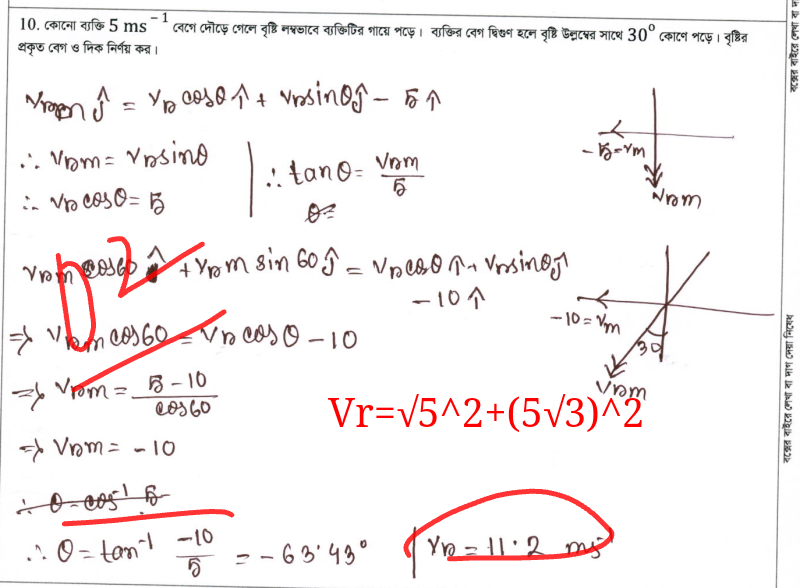 10. কোনো ব্যক্তি 5 ms⁻¹ বেগে দৌড়ে গেলে বৃষ্টি লম্বভাবে ব্যক্তিটির গায়ে পড়ে। ব্যক্তির বেগ দ্বিগুণ হলে বৃষ্টি উল্লম্বের সাথে 30° কোণে পড়ে। বৃষ্টির
প্রকৃত বেগ ও দিক নির্ণয় কর।
vᵣₘ ĵ = vᵣ cosθ î + vᵣ sinθ ĵ − 5 î
∴ vᵣₘ = vᵣ sinθ
∴ vᵣ cosθ = 5
∴ tanθ = vᵣₘ/5
θ=
−5 = vₘ
vᵣₘ
vᵣₘ cos60 î + vᵣₘ sin60 ĵ = vᵣ cosθ î + vᵣ sinθ ĵ
− 10 î
⇒ vᵣₘ cos60 = vᵣ cosθ − 10
⇒ vᵣₘ = (5 − 10)/cos60
⇒ vᵣₘ = −10
∴ θ = cos⁻¹ 5
∴ θ = tan⁻¹ −10/5 = −63.43°
vᵣ = 11.2 ms⁻
−10 = vₘ
30
vᵣₘ
02
Vr=√5^2+(5√3)^2
বক্সের বাইরে লেখা বা দাগ দেয়া নিষেধ